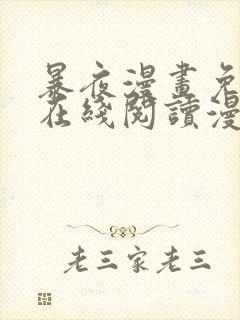 暴夜漫畫免
在綫閱讀漫
老三家老三